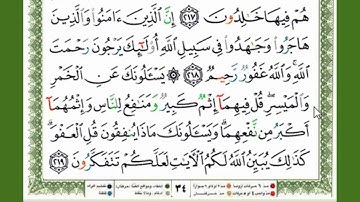 هُمْ فِيهَا خَٰلِدُونَ ٢١٧ إِنَّ ٱلَّذِينَ ءَامَنُوا۟ وَٱلَّذِينَ
هَاجَرُوا۟ وَجَٰهَدُوا۟ فِى سَبِيلِ ٱللَّهِ أُو۟لَٰٓئِكَ يَرْجُونَ رَحْمَتَ
ٱللَّهِ وَٱللَّهُ غَفُورٌ رَّحِيمٌ ٢١٨ يَسْـَٔلُونَكَ عَنِ ٱلْخَمْرِ
وَٱلْمَيْسِرِ قُلْ فِيهِمَآ إِثْمٌ كَبِيرٌ وَمَنَٰفِعُ لِلنَّاسِ وَإِثْمُهُمَآ
أَكْبَرُ مِن نَّفْعِهِمَا وَيَسْـَٔلُونَكَ مَاذَا يُنفِقُونَ قُلِ ٱلْعَفْوَ
كَذَٰلِكَ يُبَيِّنُ ٱللَّهُ لَكُمُ ٱلْءَايَٰتِ لَعَلَّكُمْ تَتَفَكَّرُونَ ٢١٩
٣٤